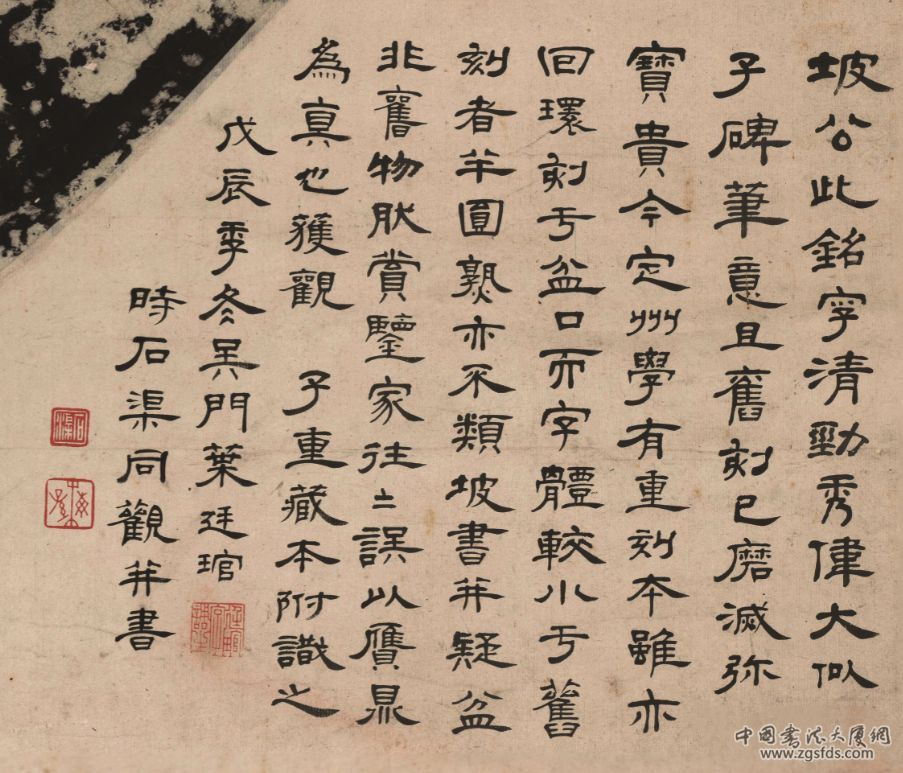 坡公此銘字清勁秀偉大似
子碑筆意且舊刻已磨滅弥
寶貴今定州學有重刻本雖亦
回環刻于盆口而字體較小于舊
刻者半圓熟亦不類坡書并疑盆
非舊物肰賞鑒家往二誤以贗鼎
為真也獲觀 子重藏本附識之
戊辰季冬吳門葉廷琯
時石渠同觀并書
石渠
中國書法大厦網
www.zgsfds.com